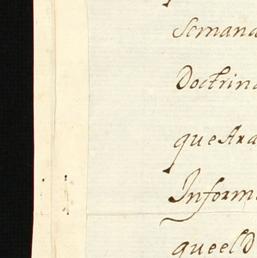 Semana
Doctrina
que Ara
Informa
que el D